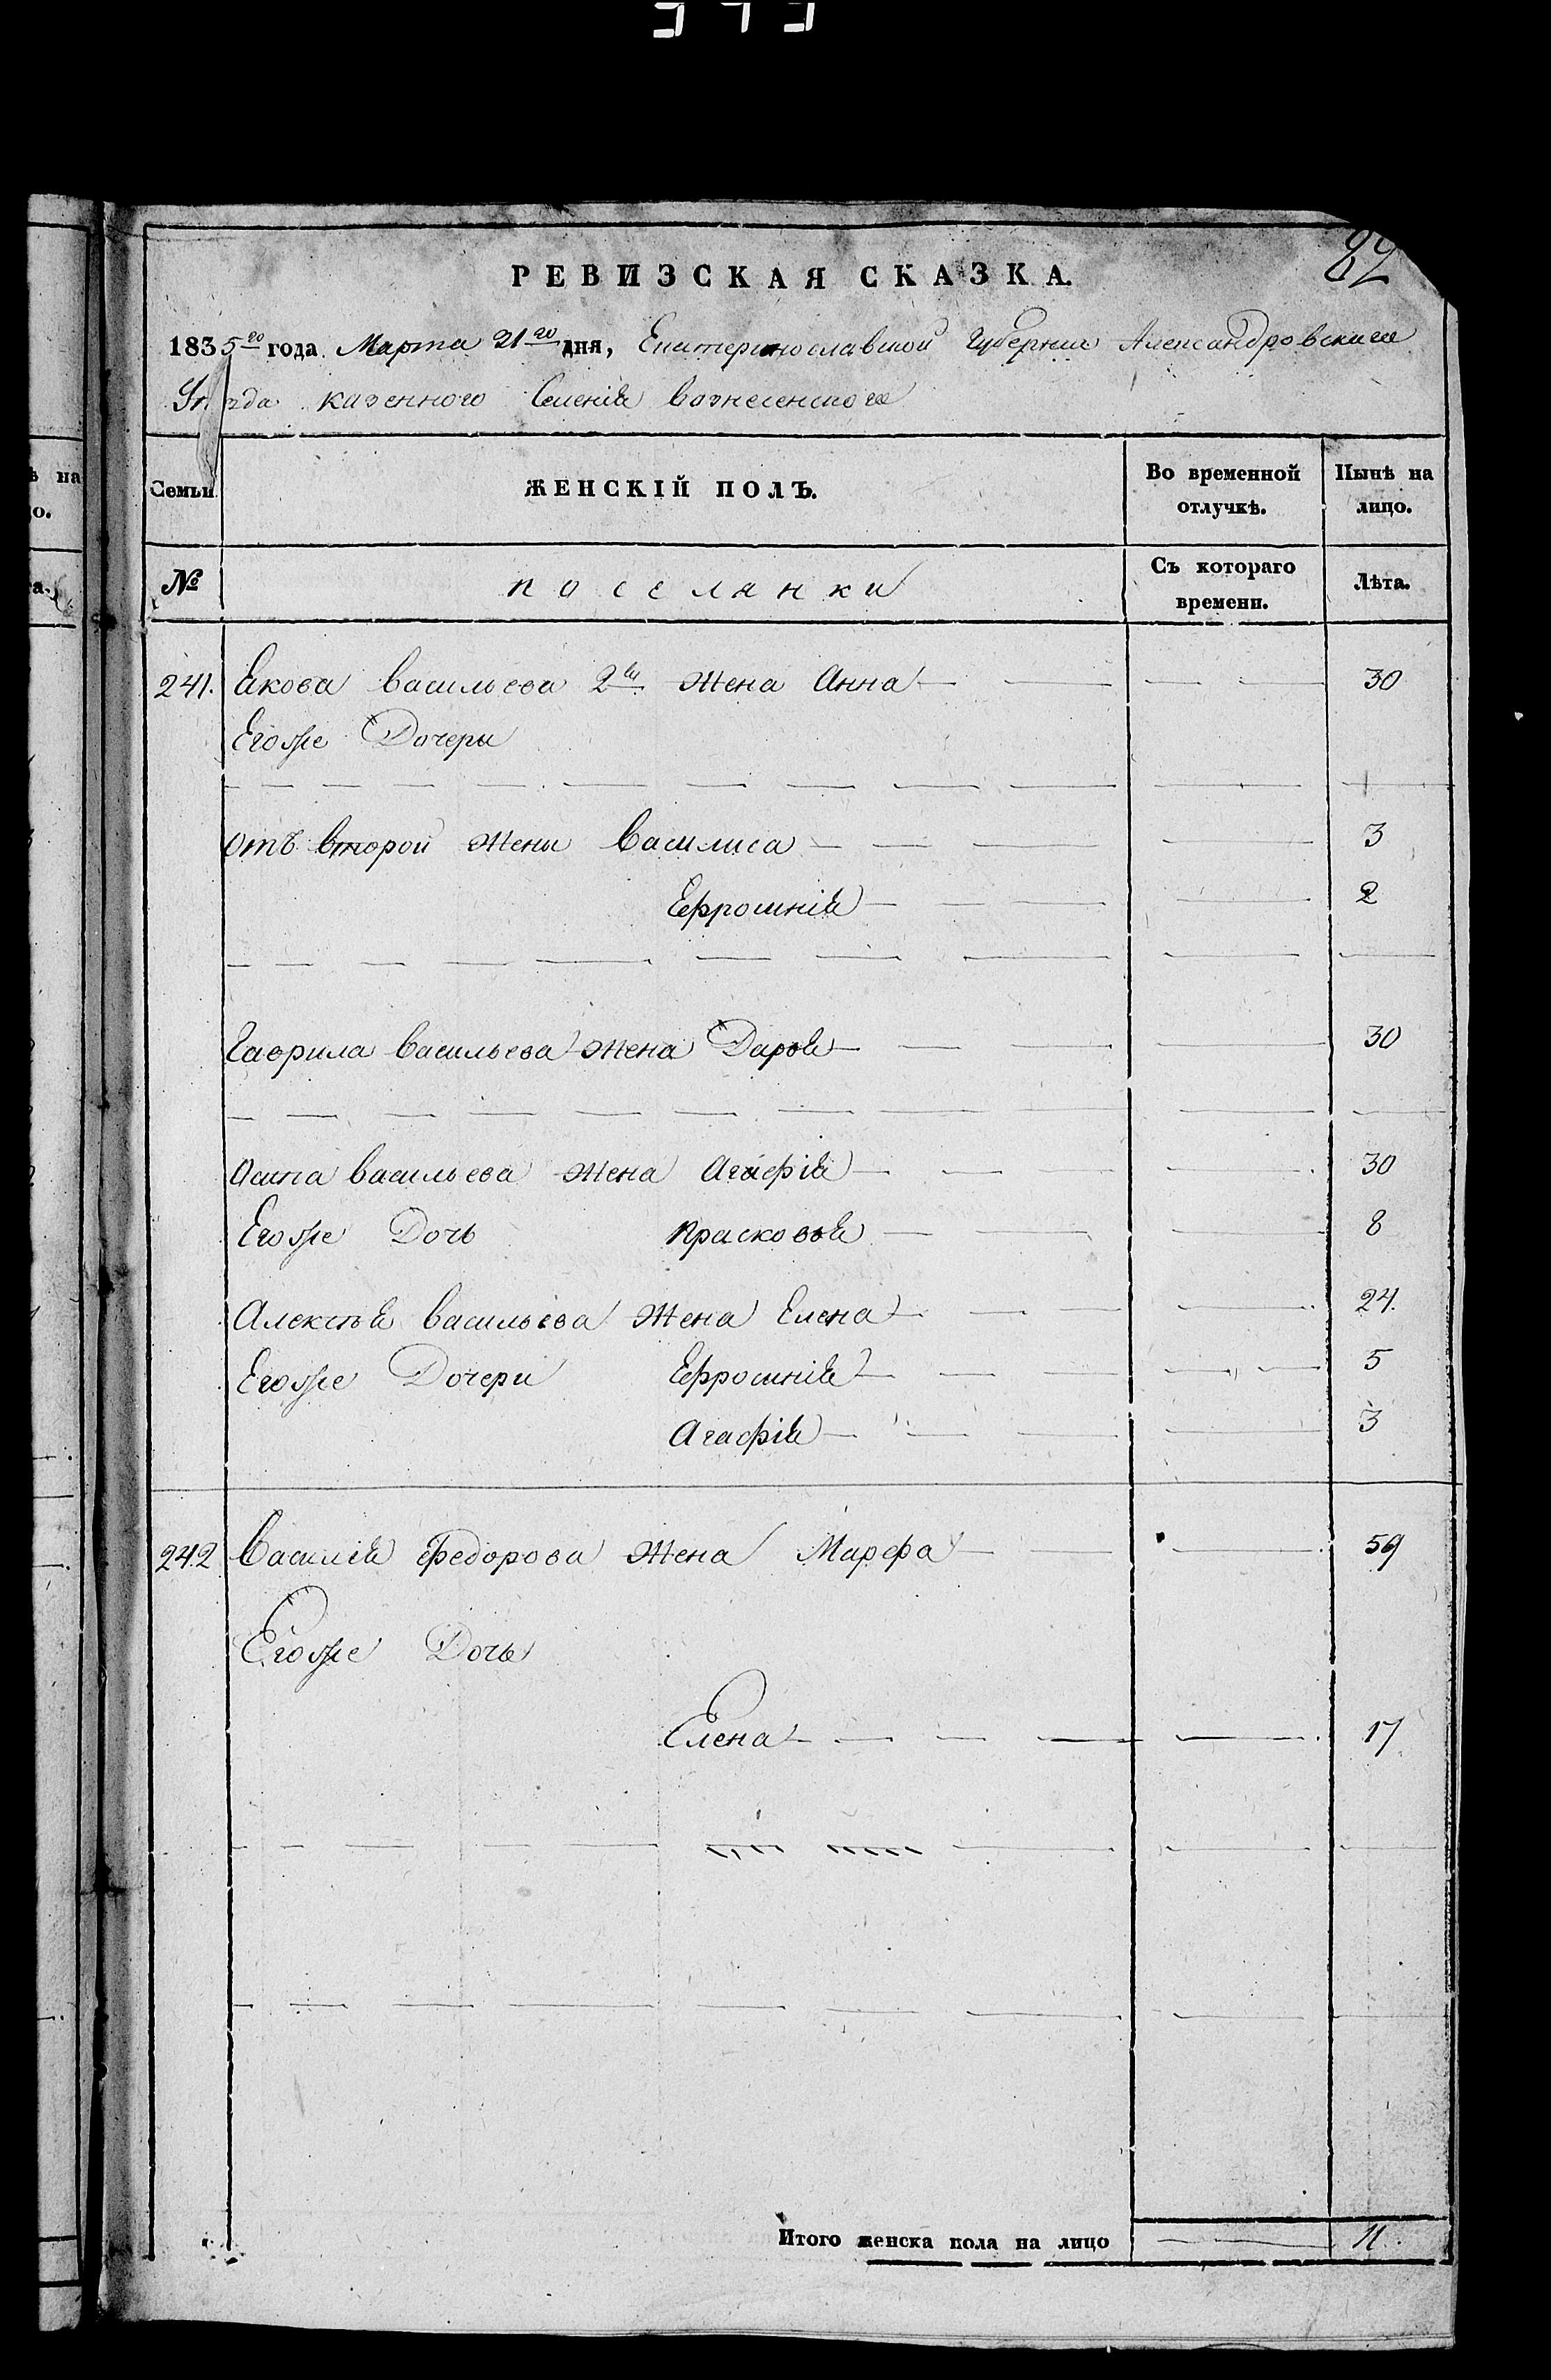 82
РЕВИЗСКАЯ СКАЗКА.
1835го года Марта 21го дня, Екатеринославской Губернии Александровскаго
Уезда казенного Селенія вознесенского
Семьи
ЖЕНСКІЙ ПОЛЪ.
Во временной отлучкѣ.
Нынѣ на лицо.
№
поселянки
Съ котораго времени.
Лѣта.
241. Якова васильева 2я жена Анна 30
Егоже Дочери
отъ второй жены Василиса 3
Ефросинія 2
Гаврила васильева жена Дарья 30
Осипа васильева жена Агафія 30
Егоже Дочь Прасковья 8
Алексѣя васильева жена Елена 24.
Егоже Дочери Ефросинія 5
Агафія 3
242 Василія Федорова жена Марфа 59
Егоже Дочь
Елена 17
Итого женска пола на лицо 11.